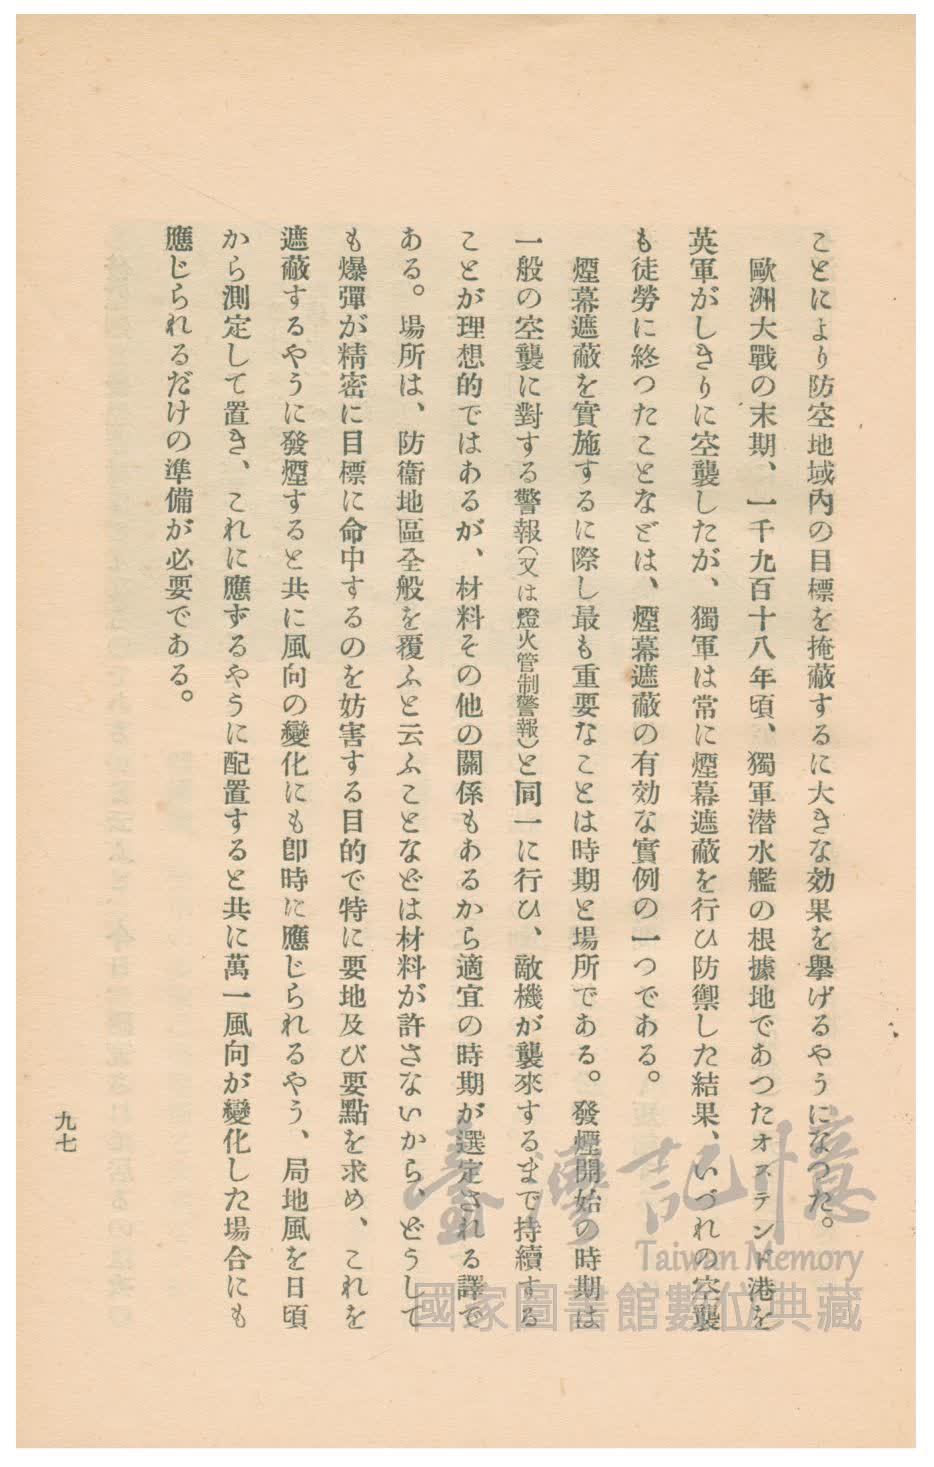 ことにより防空地域內の目標を掩蔽するに大きな効果を擧げるやうになつた。
歐洲大戰の末期、一千九百十八年頃、獨軍潜水艦の根據地であつたオステンド港を
英軍がしきりに空襲したが、獨軍は常に煙幕遮蔽を行ひ防禦した結果、いづれの空襲
も徒勞に終つたことなどは、煙幕遮蔽の有効な實例の一つである。
煙幕遮蔽を實施するに際し最も重要なことは時期と場所である。發煙開始の時期は
一般の空襲に對する警報(又は燈火管制警報)と同一に行ひ、敵機が襲來するまで持續する
ことが理想的ではあるが、材料その他の關係もあるから適宜の時期が選定される譯で
ある。場所は、防衞地區全般を覆ふと云ふことなどは材料が許さないから、どうして
も爆彈が精密に目標に命中するのを妨害する目的で特に要地及び要點を求め、これを
遮蔽するやうに發煙すると共に風向の變化にも卽時に應じられるやう、局地風を日頃
から測定して置き、これに應ずるやうに配置すると共に萬一風向が變化した場合にも
應じられるだけの準備が必要である。
九七
臺灣記憶
Taiwan Memory
國家圖書館數位典藏